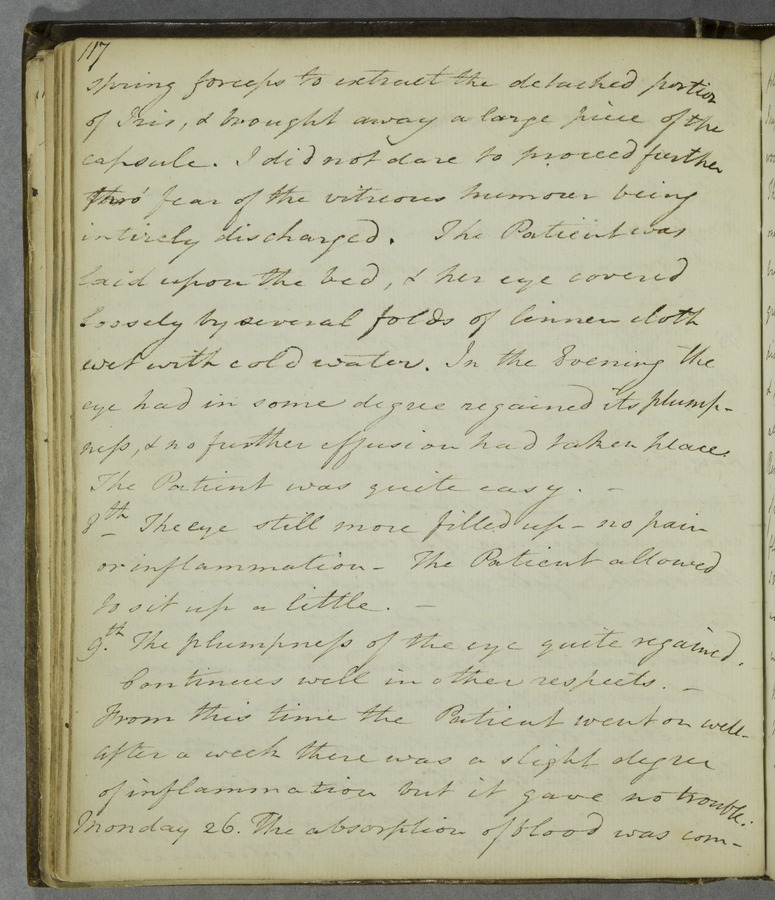 117
spring forceps to extract the detached portion
of Iris, & brought away a large piece of the
capsule. I did not dare to proceed further
thro' fear of the vitreous humour being
intirely discharged. The Patient was
laid upon the bed, & her eye covered
loosely by several folds of linnen cloth
wet with cold water. In the Evening the
eye had in some degree regained its plump-
neſs, & no further effusion had taken place.
The Patient was quite easy. -
8th The eye still more filled up - no pain
or inflammation - The Patient allowed
to sit up a little. -
9th. The plumpneſs of the eye quite regained.
Continues well in other respects. -
From this time the Patient went on well-
after a week there was a slight degree
of inflammation but it gave no trouble.
Monday 26. The absorption of blood was com-